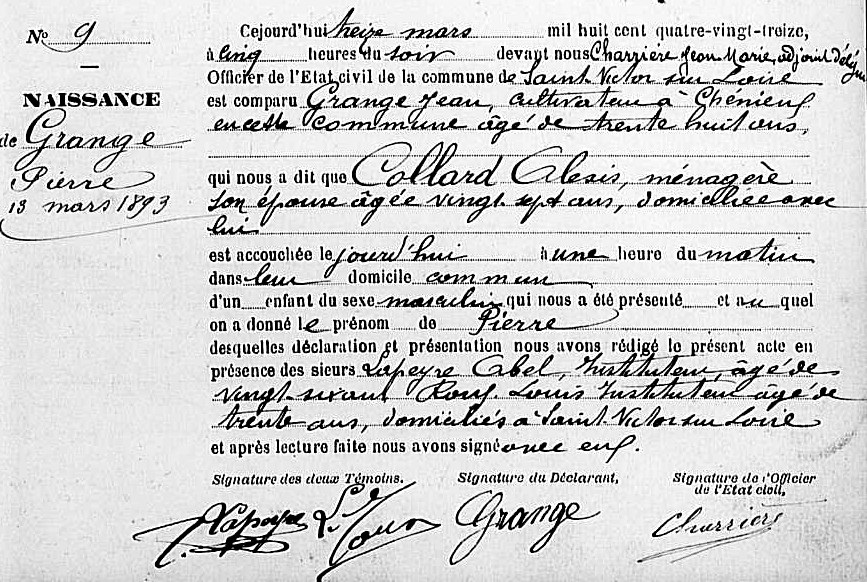 N° 9
NAISSANCE
de Grange
Pierre
13 mars 1893
Cejourd'hui treize mars mil huit cent quatre-vingt-treize,
à cinq heures du soir devant nous Charrière Jean Marie, adjoint
Officier de l'Etat civil de la commune de Saint Victor sur Loire
est comparu Grange Jean, cultivateur à Chénieux
en cette commune âgé de trente huit ans,
qui nous a dit que Collard Alexis, ménagère
son épouse âgée vingt sept ans, domiciliée avec
lui
est accouchée le jourd'hui à une heure du matin
dans leur domicile commun
d'un enfant du sexe masculin qui nous a été présenté et au quel
on a donné le prénom de Pierre
desquelles déclaration et présentation nous avons rédigé le présent acte en
présence des sieurs Lapeyre Abel, Instituteur, âgé de
vingt-six ans Roux Louis Instituteur âgé de
trente ans, domiciliés à Saint Victor sur Loire
et après lecture faite nous avons signé avec eux.
Signature des deux Témoins. Signature du Déclarant, Signature de l'Officier
de l'Etat civil,
Lapeyre L. Roux Grange Charrière